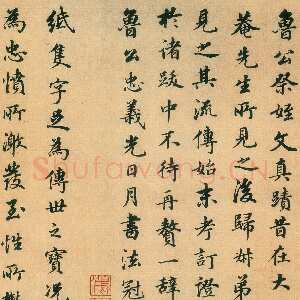 魯公祭姪文真蹟昔在大
庵先生所見之後歸舛弟
見之其流傳始末考訂證
於諸跋中不待再贅一辭
魯公忠義光日月書法冠
紙隻字足為傳世之寶況
為忠憤所激發至性所鬱